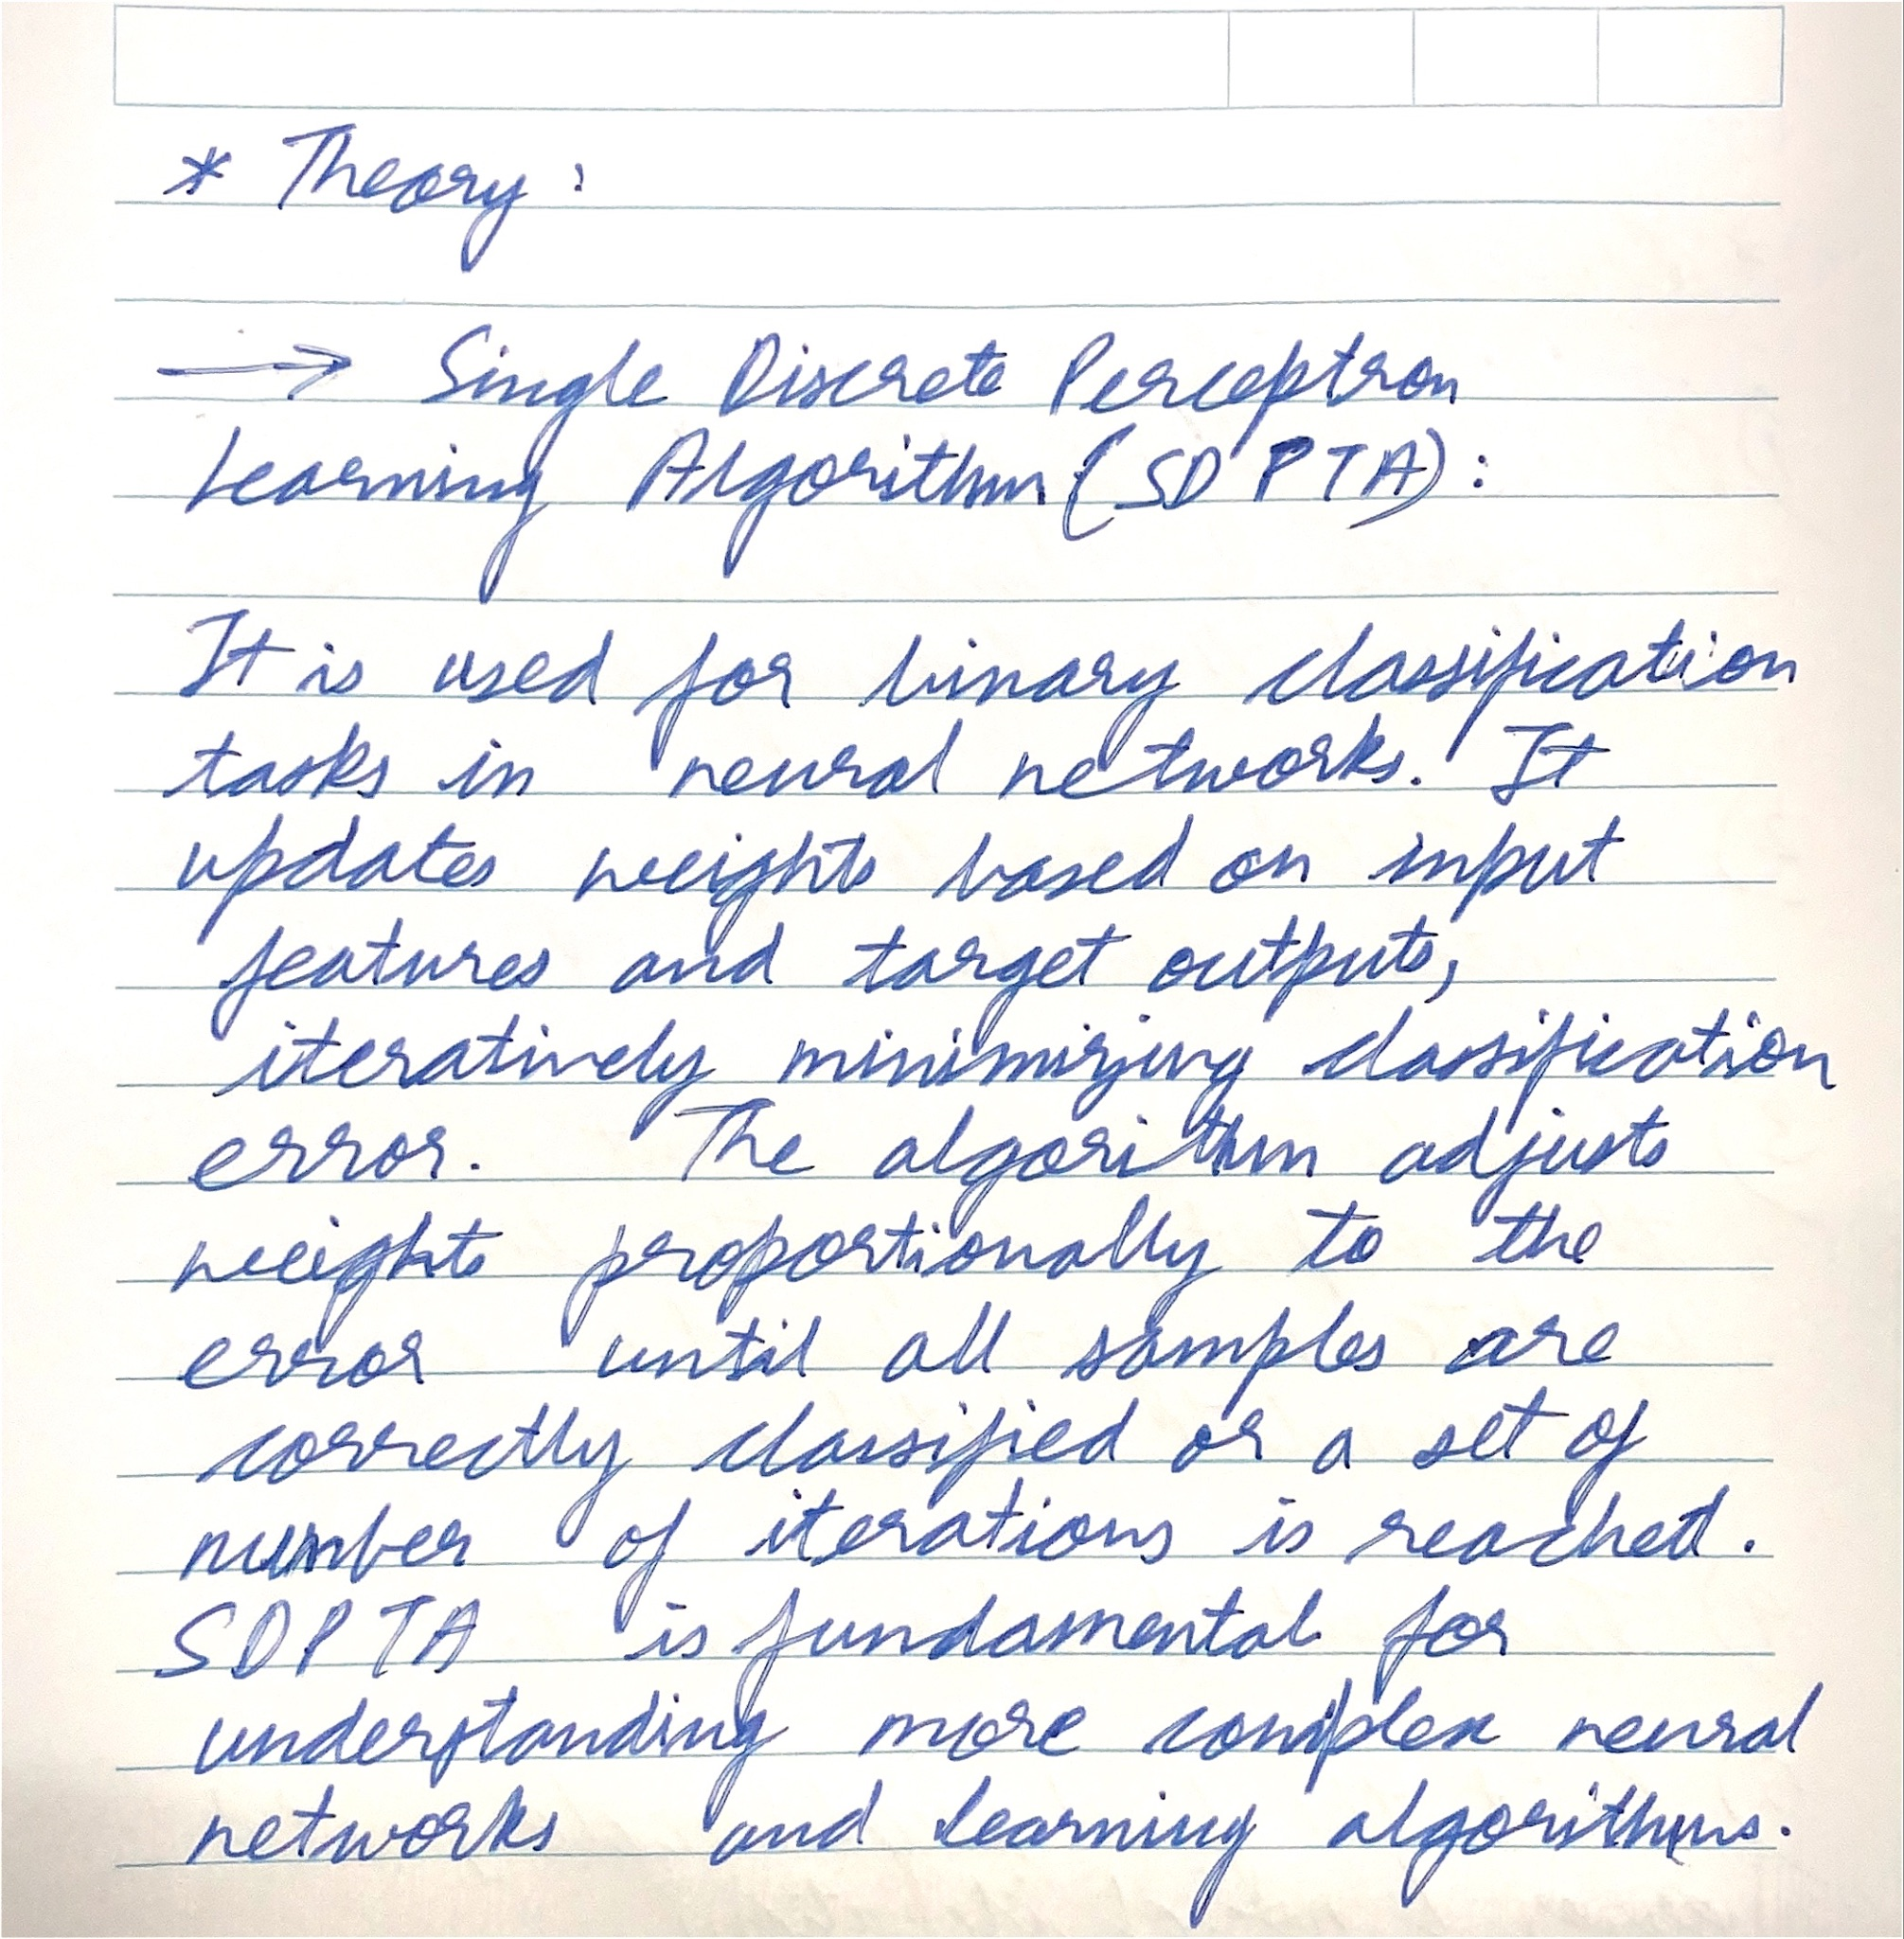 * Theory :
→ Single Discrete Perceptron
Learning Algorithm (SDPTA) :
It is used for binary classification
tasks in neural networks. It
updates weights based on input
features and target outputs,
iteratively minimizing classification
error. The algorithm adjusts
weights proportionally to the
error until all samples are
correctly classified or a set of
number of iterations is reached.
SDPTA is fundamental for
understanding more complex neural
networks and learning algorithms.